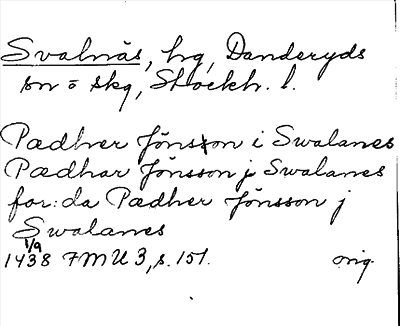 Svalnäs, hg, Danderyds
sn o skg, Stockh. l.
Pædher Jönsson i Swalanes
Pædhar Jönsson j Swalanes
for:da Pædher Jönsson j
Swalanes
1/9
1438 FMU 3, s. 151. orig.